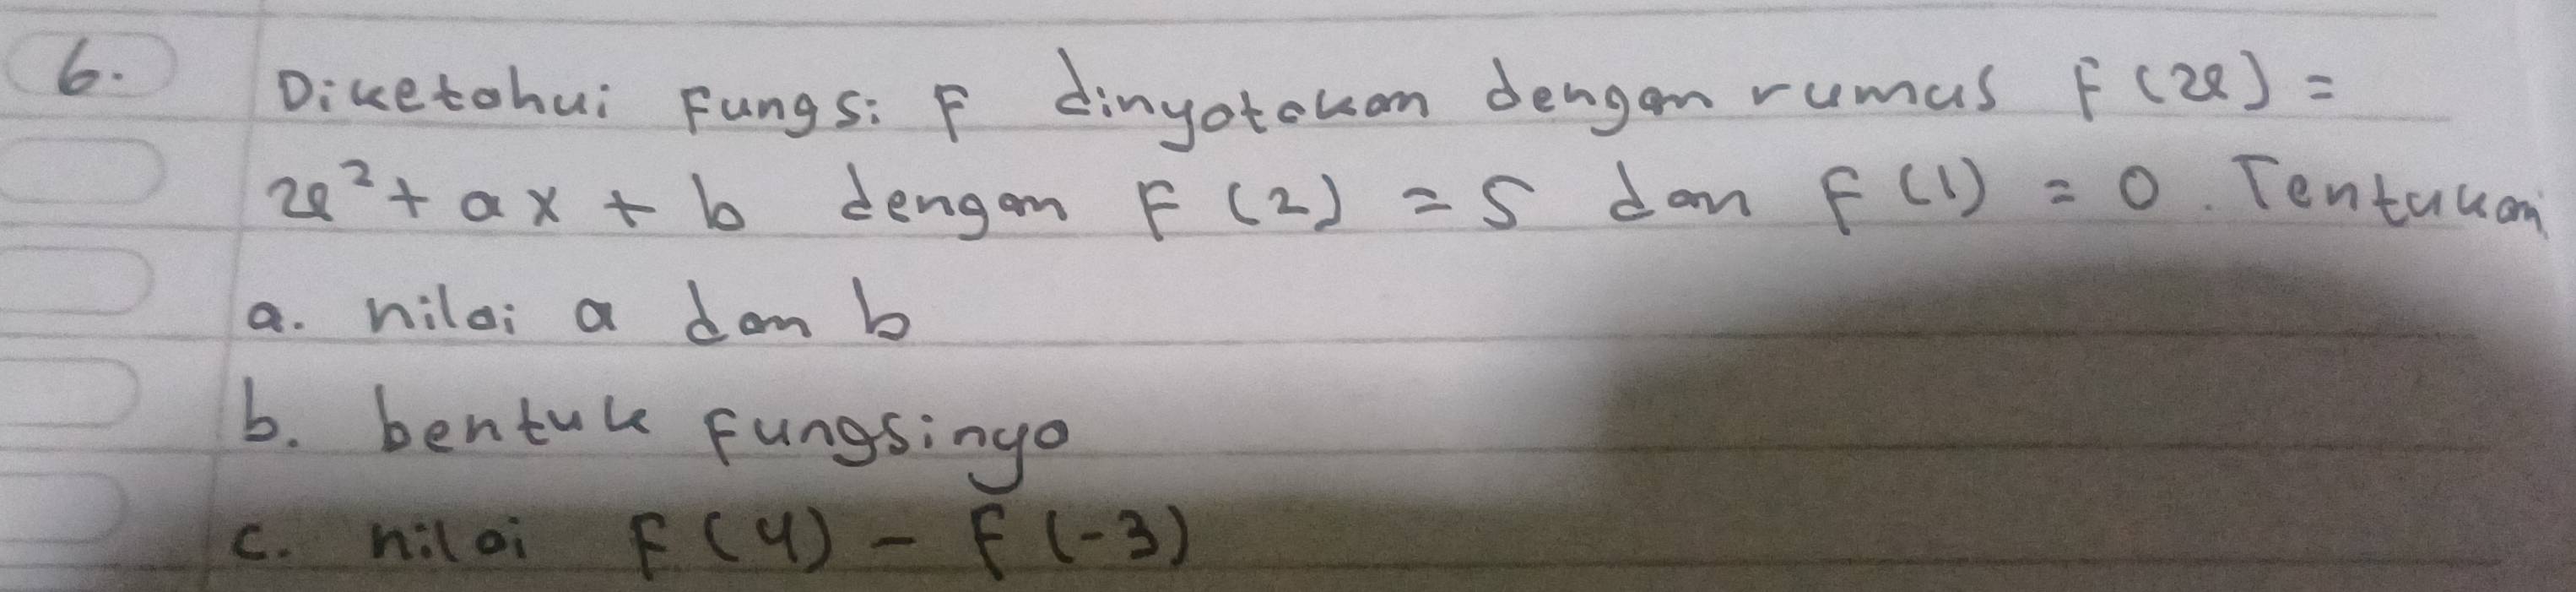 6. Diketahui Fungsi F dinyatakan dengan rumus F(x) =
x² + ax + b dengan F(2) = 5 dan F(1) = 0. Tentukan
a. nilai a dan b
b. bentuk Fungsinya
c. nilai F(4) - F(-3)